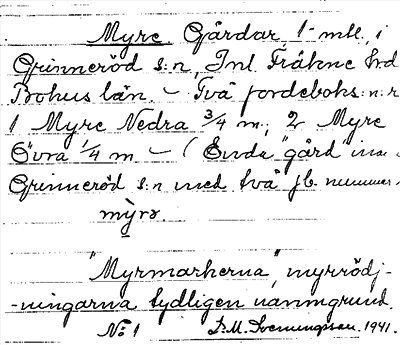 Myre. Gårdar 1 mtl. i
Grinneröd s:n, Inl. Fräkne hrd
Bohus län. – Två jordeboks:n:r
1 Myre Nedra 3/4 m.; 2 Myre
Övra 1/4 m – ( Enda "gård" ino
Grinneröd s:n med två jb. nummer
myrə.
"Myrmarkerna", myrrödj-
-ningarna tydligen namngrund.
No 1 S. M. Svenungsson. 1941.